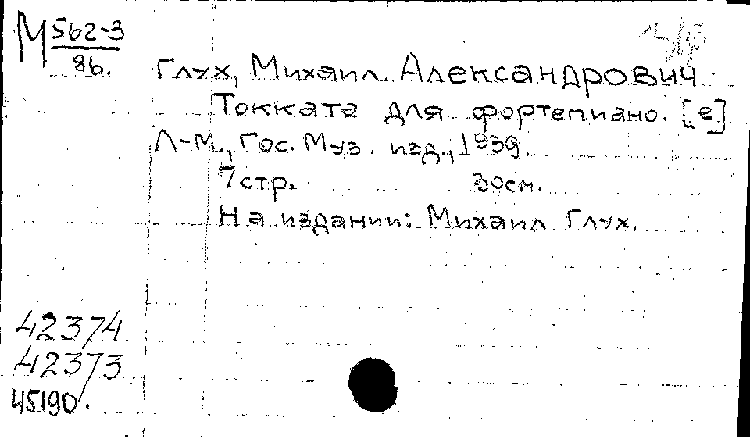 М 562-3
86.
Глух, Михаил Александрович
Токката для фортепиано. [e]
Л-М., Гос. Муз. изд., 1939.
7 стр. 30см.
На издании: Михаил Глух.
42374
42373
45190.